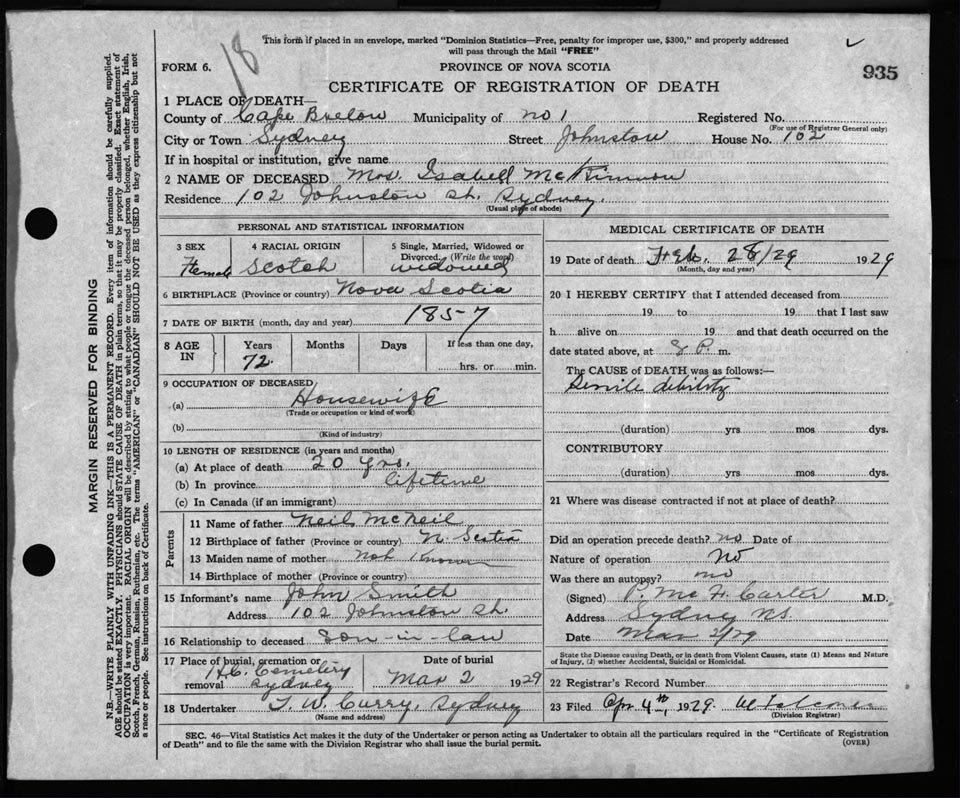 18
This form if placed in an envelope, marked "Dominion Statistics—Free, penalty for improper use, $300," and properly addressed
will pass through the Mail "FREE"
FORM 6.
PROVINCE OF NOVA SCOTIA
935
CERTIFICATE OF REGISTRATION OF DEATH
1 PLACE OF DEATH—
County of Cape Breton Municipality of No 1 Registered No.
(For use of Registrar General only)
City or Town Sydney Street Johnston House No. 102
If in hospital or institution, give name
2 NAME OF DECEASED Mrs. Isabell McKinnon
Residence 102 Johnston St. Sydney.
(Usual place of abode)
PERSONAL AND STATISTICAL INFORMATION
3 SEX 4 RACIAL ORIGIN 5 Single, Married, Widowed or
Divorced. (Write the word)
Female Scotch widowed
6 BIRTHPLACE (Province or country) Nova Scotia
7 DATE OF BIRTH (month, day and year) 1857
8 AGE IN Years Months Days If less than one day,
72 hrs. or min.
9 OCCUPATION OF DECEASED
(a) Housewife
(Trade or occupation or kind of work)
(b)
(Kind of industry)
10 LENGTH OF RESIDENCE (in years and months)
(a) At place of death 20 yrs.
(b) In province lifetime
(c) In Canada (if an immigrant)
Parents
11 Name of father Neil McNeil
12 Birthplace of father (Province or country) N. Scotia
13 Maiden name of mother Not Known
14 Birthplace of mother (Province or country)
15 Informant's name John Smith
Address 102 Johnston St.
16 Relationship to deceased Son-in-law
17 Place of burial, cremation or removal Cemetery Sydney
Date of burial
Mar 2 1929
18 Undertaker T. W. Curry, Sydney
(Name and address)
MEDICAL CERTIFICATE OF DEATH
19 Date of death Feb. 28/29 1929
(Month, day and year)
20 I HEREBY CERTIFY that I attended deceased from
19 to 19 that I last saw
h alive on 19 and that death occurred on the
date stated above, at 8 P. m.
The CAUSE of DEATH was as follows:—
Senile debility
(duration) yrs mos dys.
CONTRIBUTORY
(duration) yrs mos dys.
21 Where was disease contracted if not at place of death?
Did an operation precede death? no Date of
Nature of operation No
Was there an autopsy? no
(Signed) P. Mc F. Carter M.D.
Address Sydney NS.
Date Mar 2/29
State the Disease causing Death, or in death from Violent Causes, state (1) Means and Nature
of Injury, (2) whether Accidental, Suicidal or Homicidal.
22 Registrar's Record Number
23 Filed Apr 4th, 1929.
(Division Registrar)
SEC. 46—Vital Statistics Act makes it the duty of the Undertaker or person acting as Undertaker to obtain all the particulars required in the "Certificate of Registration
of Death" and to file the same with the Division Registrar who shall issue the burial permit.
(OVER)
MARGIN RESERVED FOR BINDING
N.B.—WRITE PLAINLY WITH UNFADING INK—THIS IS A PERMANENT RECORD. Every item of information should be carefully supplied.
AGE should be stated EXACTLY. PHYSICIANS should STATE CAUSE OF DEATH in plain terms, so that it may be properly classified. Exact statement of
OCCUPATION is very important. RACIAL ORIGIN will be described by stating to what people or tongue the deceased person belonged, whether English, Irish,
Scotch, French, German, Russian, Ruthenian, etc. The terms "AMERICAN" or "CANADIAN" SHOULD NOT BE USED as they express citizenship but not
a race or people. See instructions on back of Certificate.